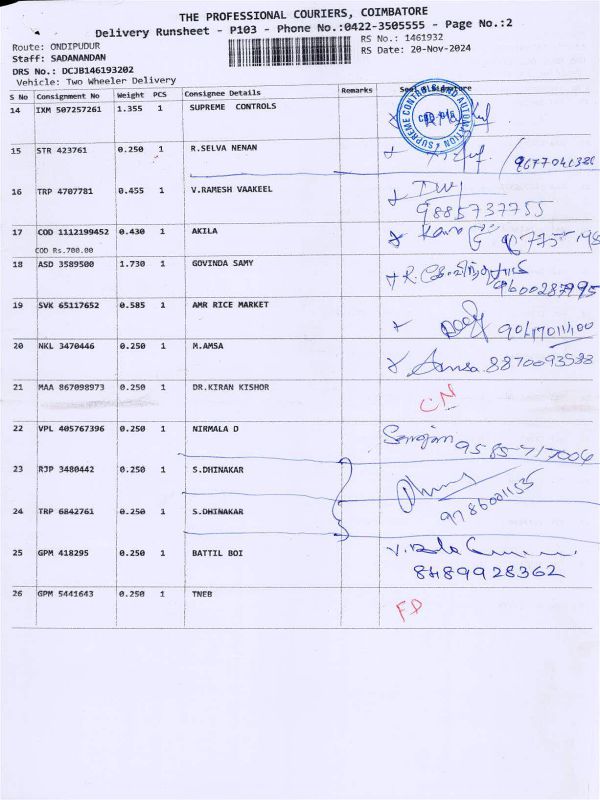 THE PROFESSIONAL COURIERS, COIMBATORE
Delivery Runsheet - P103 - Phone No.:0422-3505555 - Page No.:2
Route: ONDIPUDUR
RS No.: 1461932
Staff: SADANANDAN
RS Date: 20-Nov-2024
DRS No.: DCJB146193202
Vehicle: Two Wheeler Delivery
S No Consignment No Weight PCS Consignee Details Remarks
14 IXM 507257261 1.355 1 SUPREME CONTROLS
SUPREME CONTROLS AND AUTOMATION
15 STR 423761 0.250 1 R.SELVA NENAN
16 TRP 4707781 0.455 1 V.RAMESH VAAKEEL
9885737755
17 COD 1112199452 0.430 1 AKILA
COD Rs.700.00
18 ASD 3589500 1.730 1 GOVINDA SAMY
9600287995
19 SVK 65117652 0.585 1 AMR RICE MARKET
20 NKL 3470446 0.250 1 M.AMSA
Amsa. 8870093533
21 MAA 867098973 0.250 1 DR.KIRAN KISHOR
CN
22 VPL 405767396 0.250 1 NIRMALA D
9585717004
23 RJP 3480442 0.250 1 S.DHINAKAR
24 TRP 6842761 0.250 1 S.DHINAKAR
9786001535
25 GPM 418295 0.250 1 BATTIL BOI
8489928362
26 GPM 5441643 0.250 1 TNEB
FD